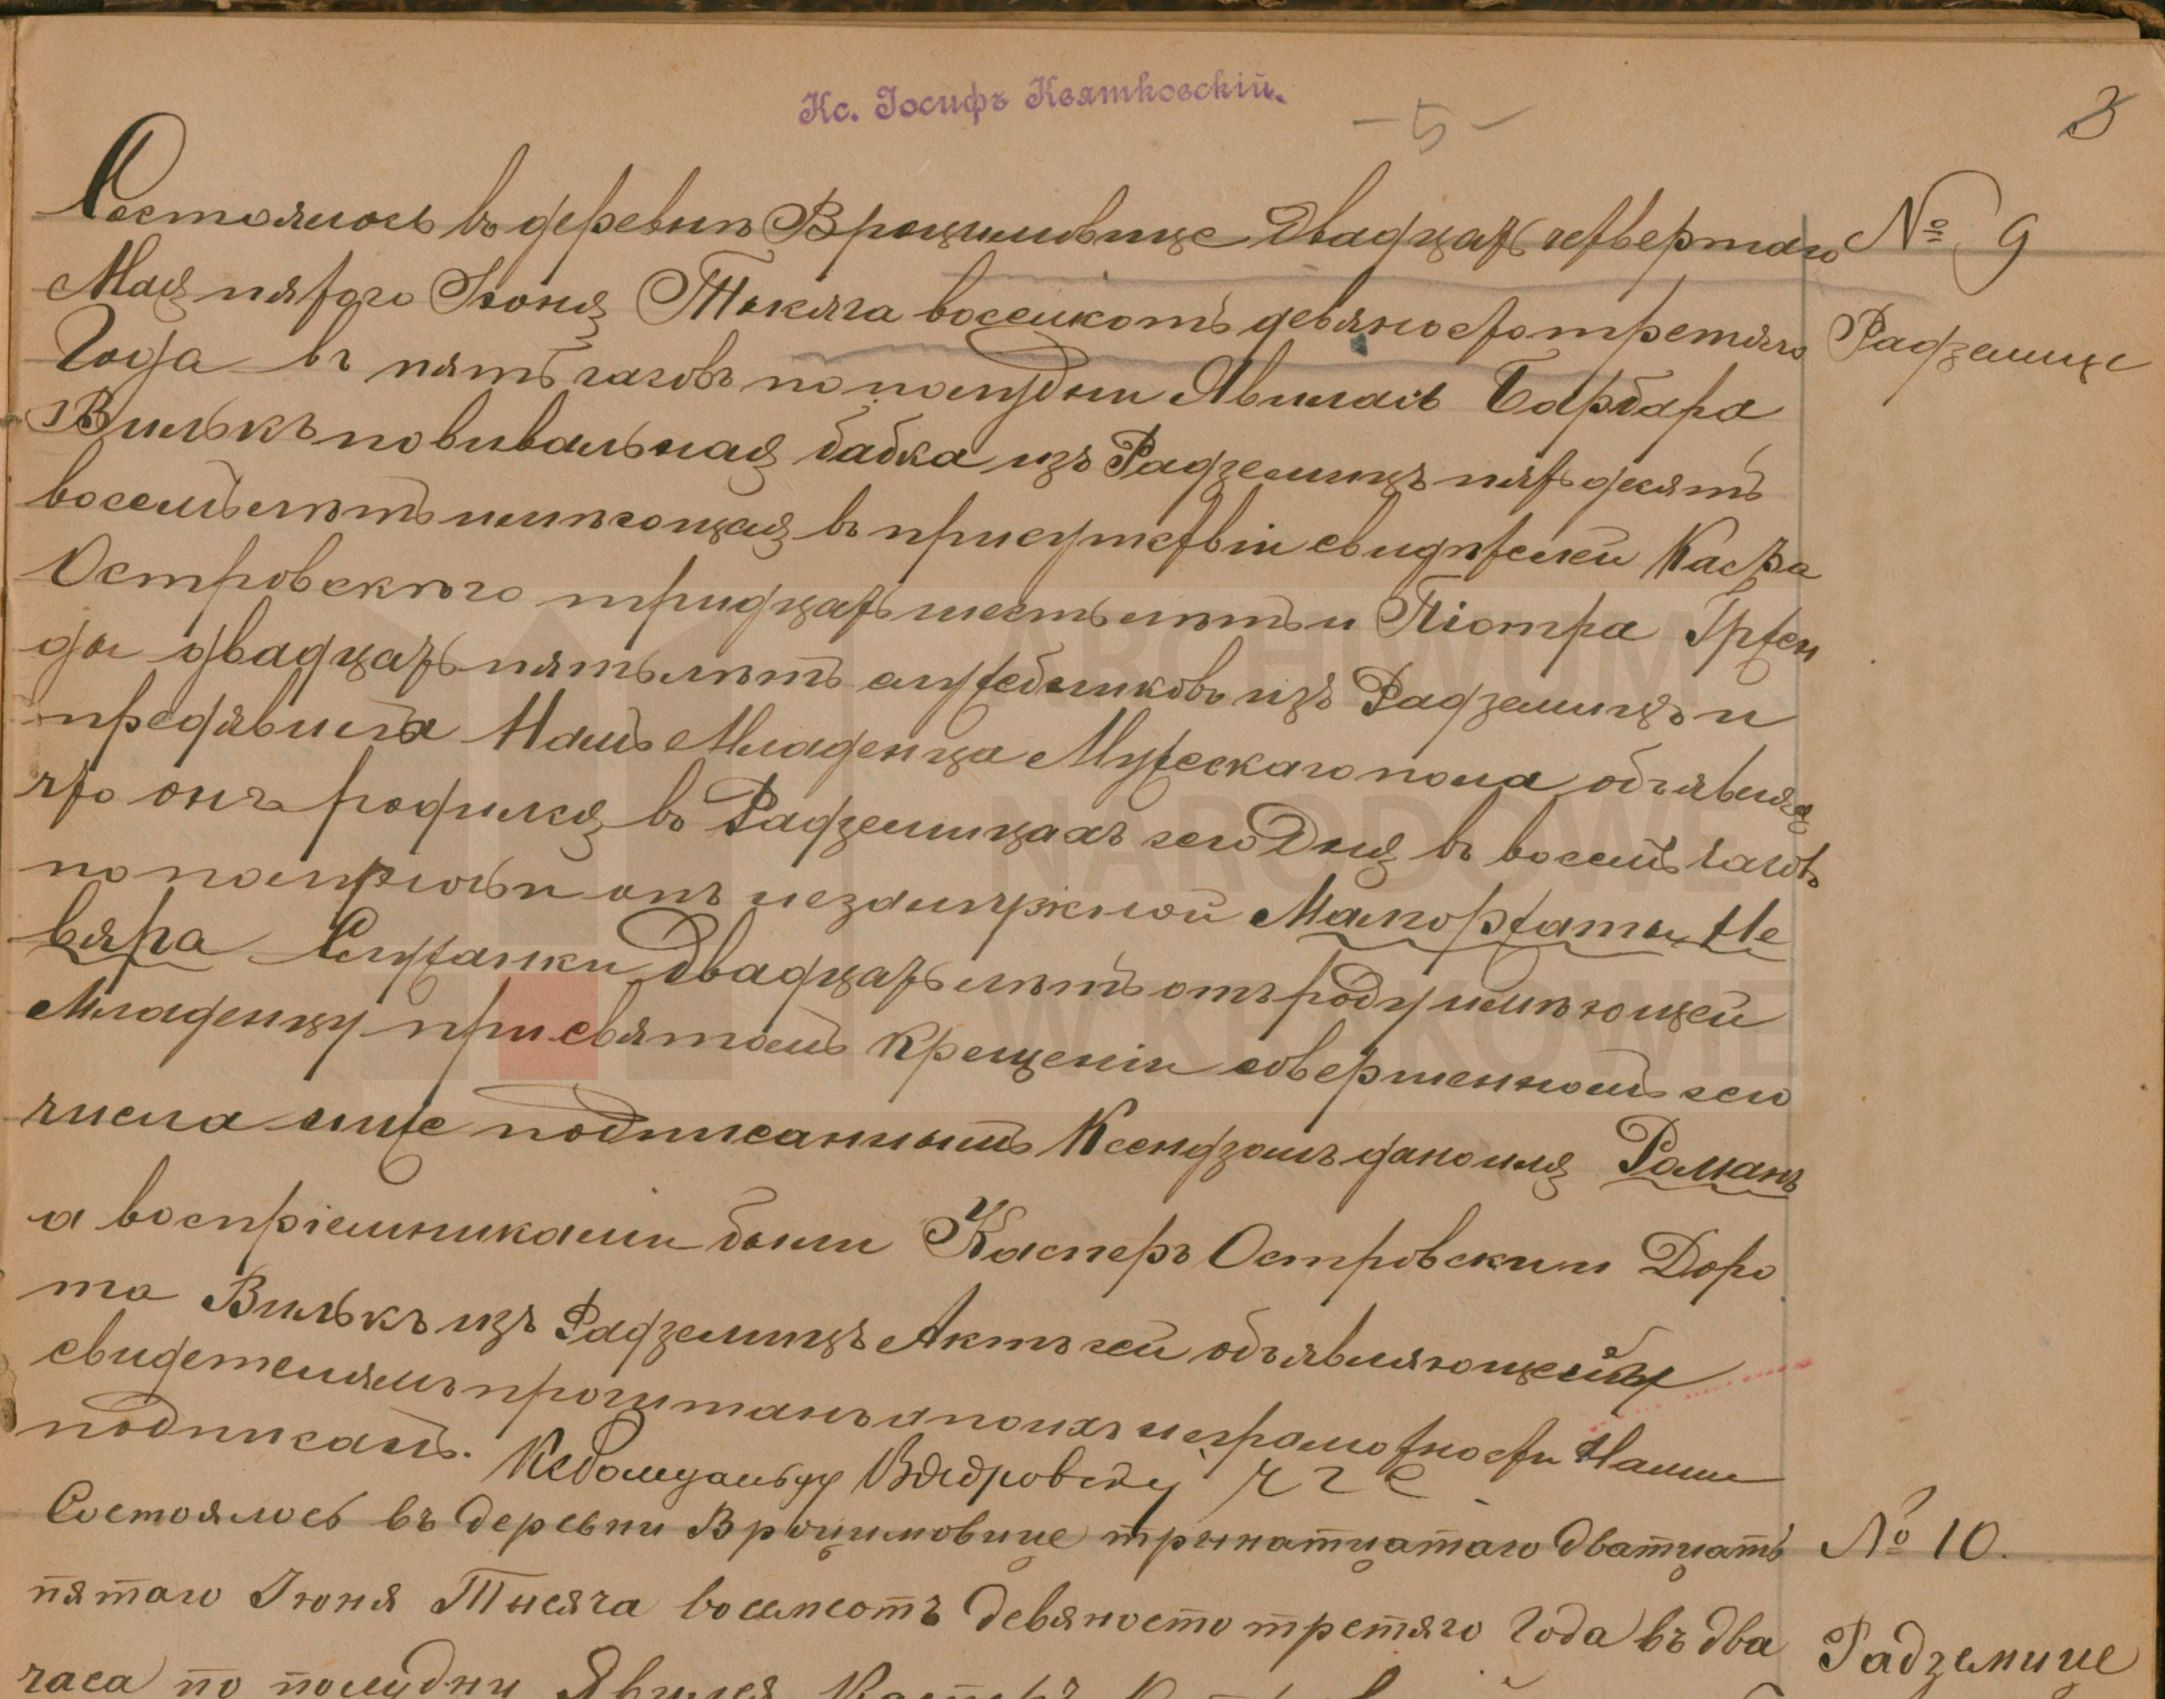 Кс. Іосифъ Квятковскій.
-5-
3
Состоялось въ деревнѣ Вроцимовице двадцать четвертаго № 9
Мая пятого Іюня Тысяча восемсотъ девяносто третяго Радземице
Года въ пять часовъ по полудни Явилась Барбара
Вилькъ повивальная бабка изъ Радземицъ пятьдесятъ
восемь лѣтъ имѣющая въ присутствіи свидѣтелей Каспра
Островскего тридцать шесть лѣтъ и Піотра
ды двадцать пять лѣтъ служебниковъ изъ Радземицъ и
предявила Намъ Младенца Мужескаго пола объявляя
что онъ родился въ Радземицахъ сего Дня въ восемь часовъ
по полуночи отъ незамужной Малгоржаты Не
вяра Служанки двадцать лѣтъ отъ роду имѣющей
Младенцу при святомъ Крещеніи совершенномъ сего
числа ниже подписаннымъ Ксендзомъ дано имя Романъ
а воспріемниками были Касперъ Островски и Доро
та Вилькъ изъ Радземицъ Актъ сей объявляющей и
свидетелямъ прочитанъ а по ихъ неграмотности Нами
подписанъ.
Состоялось въ деревни Вроцимовице тринатцатаго дватцать № 10.
пятаго Іюня Тысяча восемсотъ девяносто третяго Года въ два Радземице
часа по полудни Явился
ARCHIWUM
NARODOWE
W KRAKOWIE